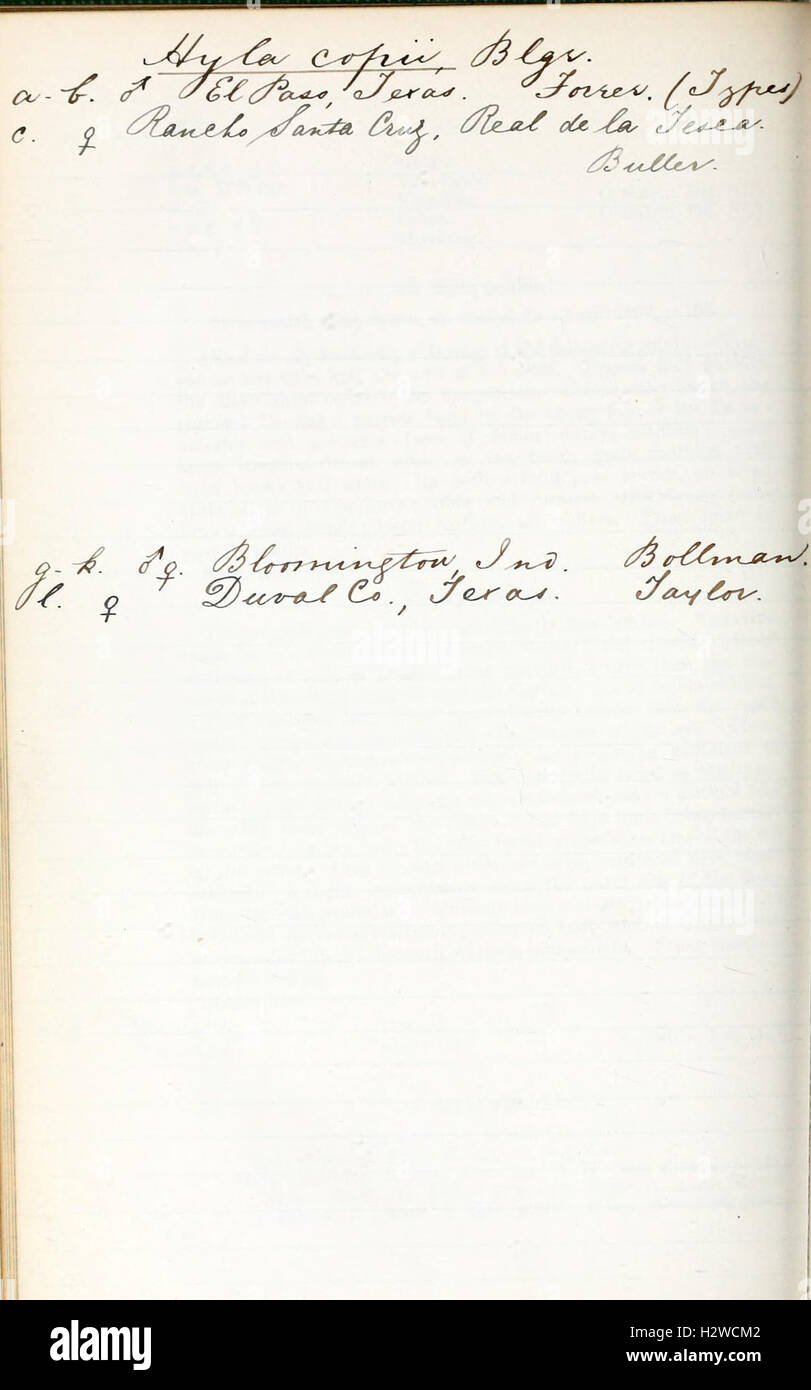 Hyla copii, Blgr.
a-b. ♂ El Paso, Texas. Forrer. (Types)
c. ♀ Rancho Santa Cruz, Real de la Yesca.
Buller.
g-k. ♂♀. Bloomington, Ind. Bollman.
l. ♀ Duval Co., Texas. Taylor.
alamy
alamy
alamy
alamy
alamy
Image ID: H2WCM2
www.alamy.com